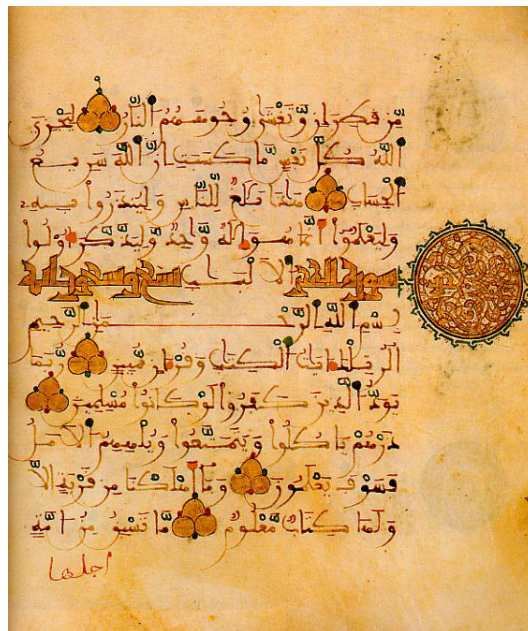 مّن قطران وّتغشى وجوههم النّار ليجزي
اللّه كلّ نفس مّا كسبت انّ اللّه سريع
الحساب هذا بلغ لّلنّاس ولينذروا به
وليعلموا انّما هو اله وّاحد وّليذّكّر اولوا
سورة الحجر الالبب تسع وتسعون اية
بسم اللّه الرّحمن الرّحيم
الر تلك ايت الكتب وقران مّبين رّبما
يودّ الّذين كفروا لو كانوا مسلمين
ذرهم ياكلوا ويتمتّعوا ويلههم الامل
فسوف يعلمون وما اهلكنا من قرية الاّ
ولها كتاب مّعلوم مّا تسبق من امّة
اجلها